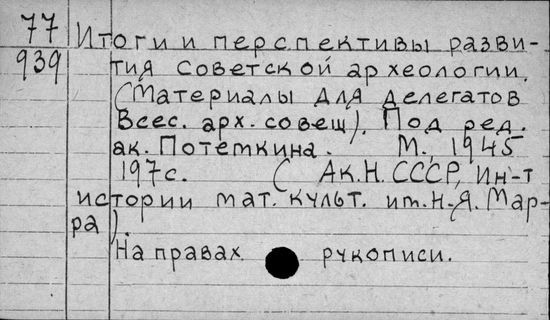 77
939
Итоги и перспективы разви-
тия советской археологии.
(Материалы для делегатов
Всес. арх. совещ.). Под ред.
ак. Потемкина. М., 1945
197 с. (Ак. Н. СССР, Ин-т
истории мат. культ. им. Н. Я. Мар-
ра).
На правах рукописи.